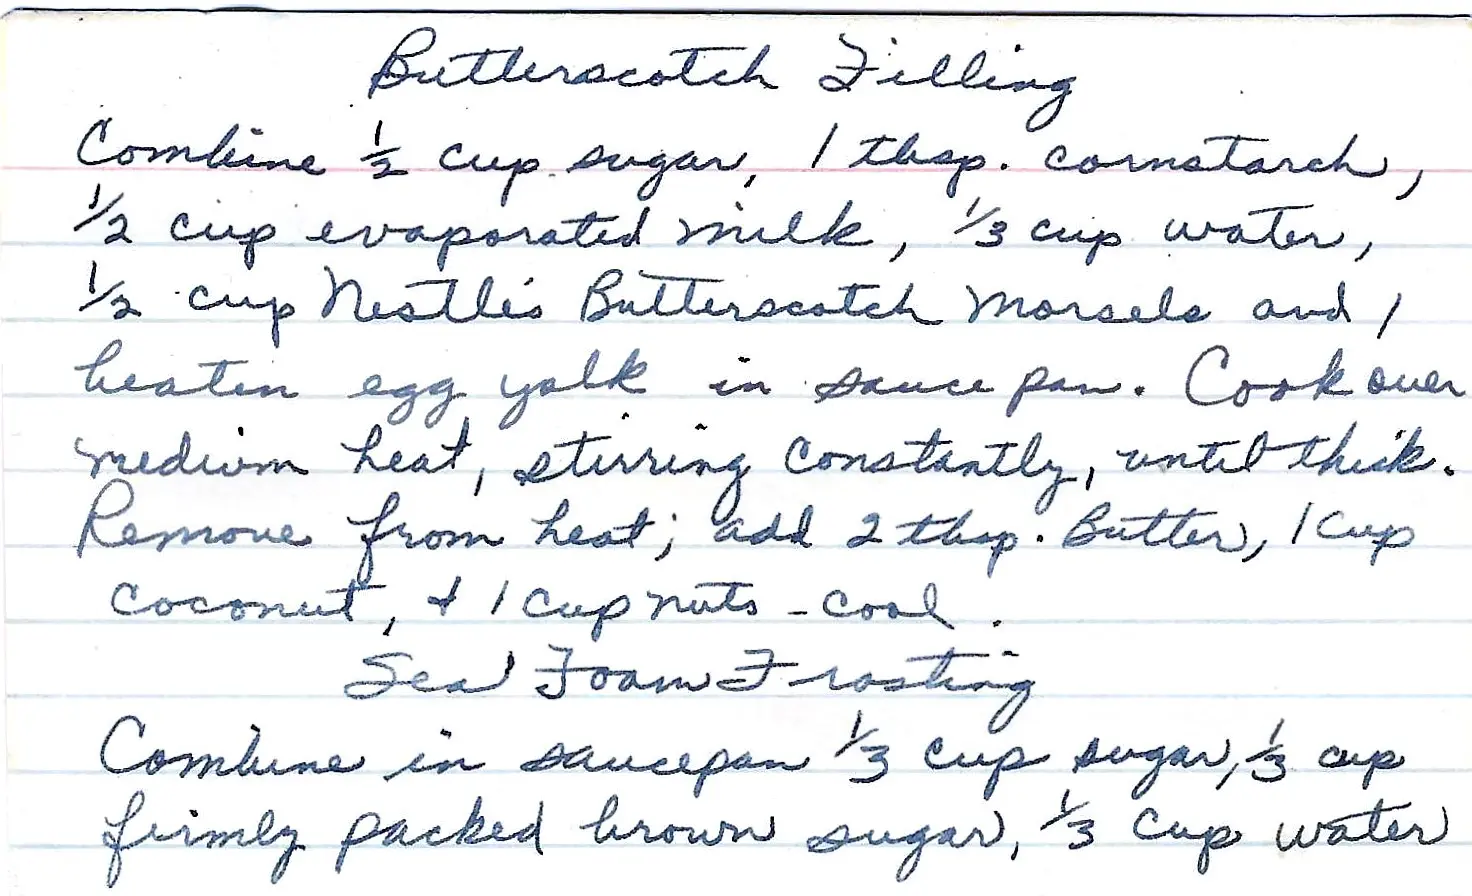 Butterscotch Filling
Combine 1/2 cup sugar, 1 tbsp. cornstarch,
1/2 cup evaporated milk, 1/3 cup water,
1/2 cup Nestle's Butterscotch Morsels and 1
beaten egg yolk in sauce pan. Cook over
medium heat, stirring constantly, until thick.
Remove from heat; add 2 tbsp. Butter, 1 cup
coconut, & 1 cup nuts - cool.
Sea Foam Frosting
Combine in saucepan 1/3 cup sugar, 1/3 cup
firmly packed brown sugar, 1/3 cup water